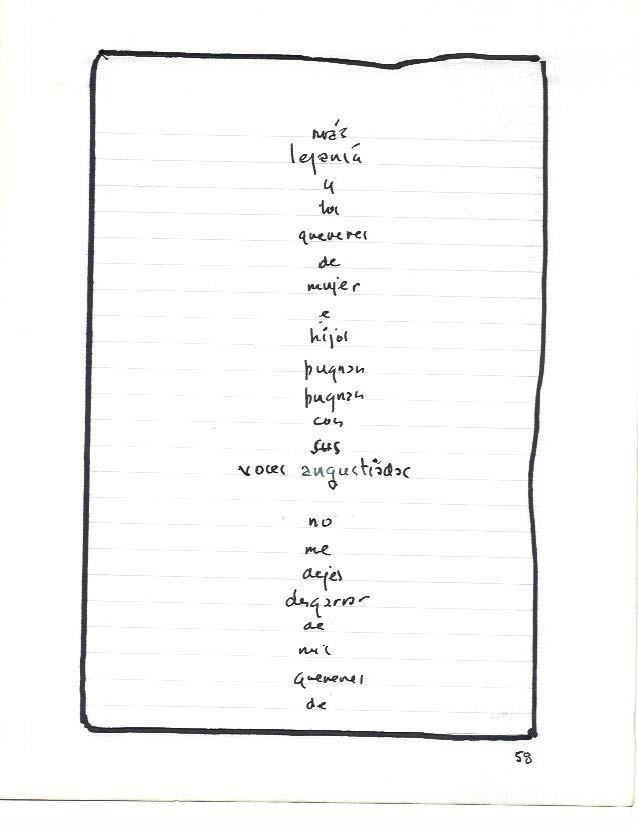 más
lejanía
y
los
quereres
de
mujer
e
hijos
pugnan
pugnan
con
sus
voces angustiadas
no
me
dejes
desgarrar
de
mis
quereres
de
58